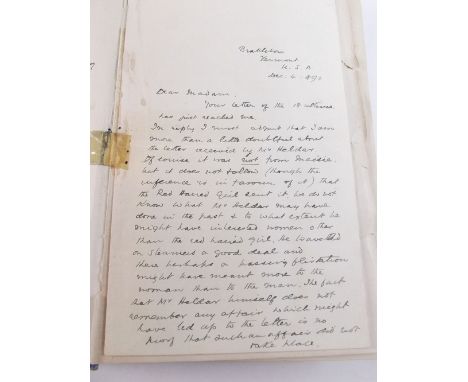 Brattleboro
Vermont
U.S.A
Dec. 4. 1893
Dear Madam.
Your letter of the 18 ultimo
has just reached me.
In reply I must admit that I am
more than a little doubtful about
the letter received by Mr Heldar
Of course it was not from Maisie.
but it does not follow (though the
inference is in favour of it) that
the Red Haired Girl sent it. We do not
know what Mr Heldar may have
done in the past & to what extent he
might have interested women other
than the red haired girl. He travelled
on steamers a good deal and
there perhaps a passing flirtation
might have meant more to the
woman than to the man. The fact
that Mr Heldar himself does not
remember any affair which might
have led up to the letter is no
proof that such an affair did not
take place